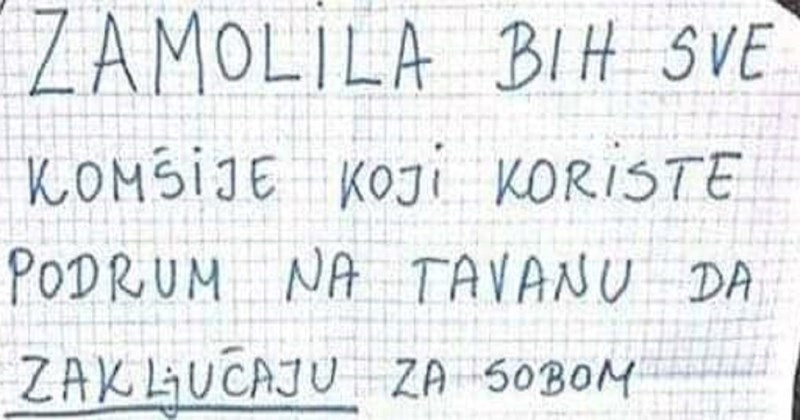 ZAMOLILA BIH SVE
KOMŠIJE KOJI KORISTE
PODRUM NA TAVANU DA
ZAKLjUČAJU ZA SOBOM